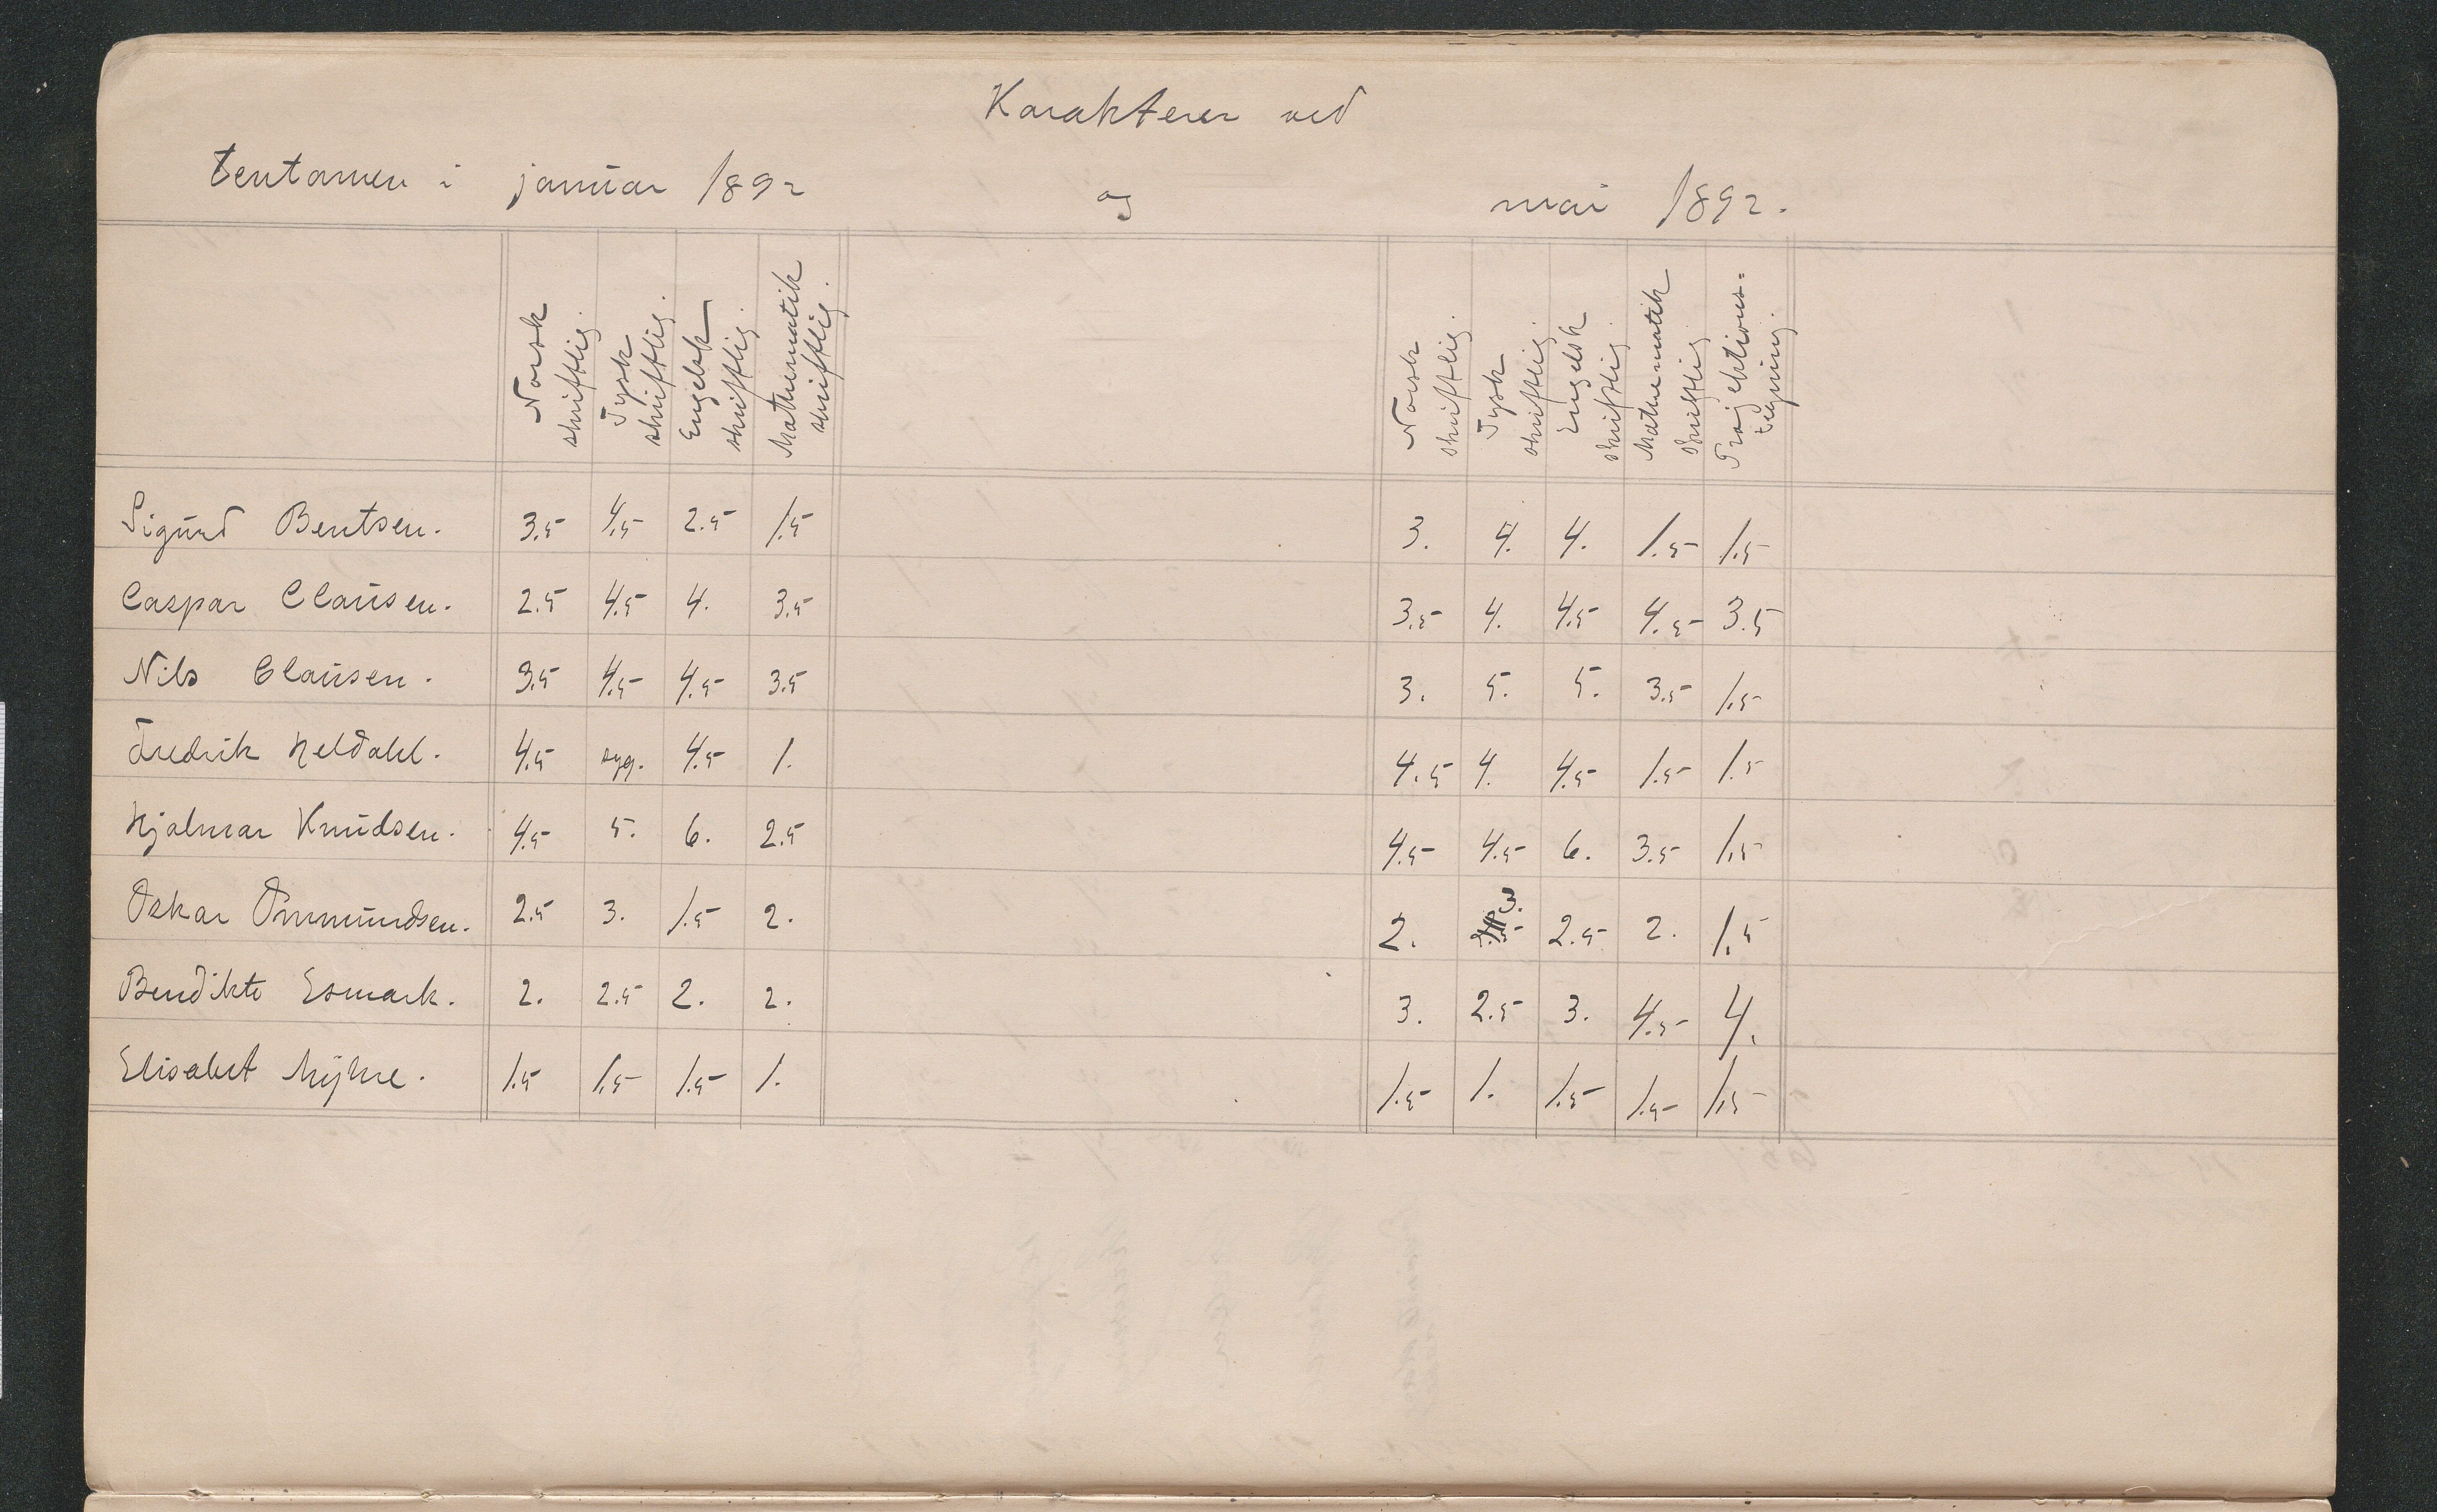 Karakterer ved
tentamen i januar 1892 og mai 1892.
Norsk skriftlig. Tysk skriftlig. Engelsk skriftlig. Mathematik skriftlig. Norsk skriftlig. Tysk skriftlig. Engelsk skriftlig. Mathematik skriftlig. Projektions=tegning.
Sigurd Bentsen. 3.5 4.5 2.5 1.5 3. 4. 4. 1.5 1.5
Caspar Clausen. 2.5 4.5 4. 3.5 3.5 4. 4.5 4.5 3.5
Nils Clausen. 3.5 4.5 4.5 3.5 3. 5. 5. 3.5 1.5
Fredrik Heldahl. 4.5 syg. 4.5 1. 4.5 4. 4.5 1.5 1.5
Hjalmar Knudsen. 4.5 5. 6. 2.5 4.5 4.5 6. 3.5 1.5
Oskar Ommundsen. 2.5 3. 1.5 2. 2. 3. 2.5 2. 1.5
Bendikte Esmark. 2. 2.5 2. 2. 3. 2.5 3. 4.5 4.
Elisabet Myhre. 1.5 1.5 1.5 1. 1.5 1. 1.5 1.5 1.5